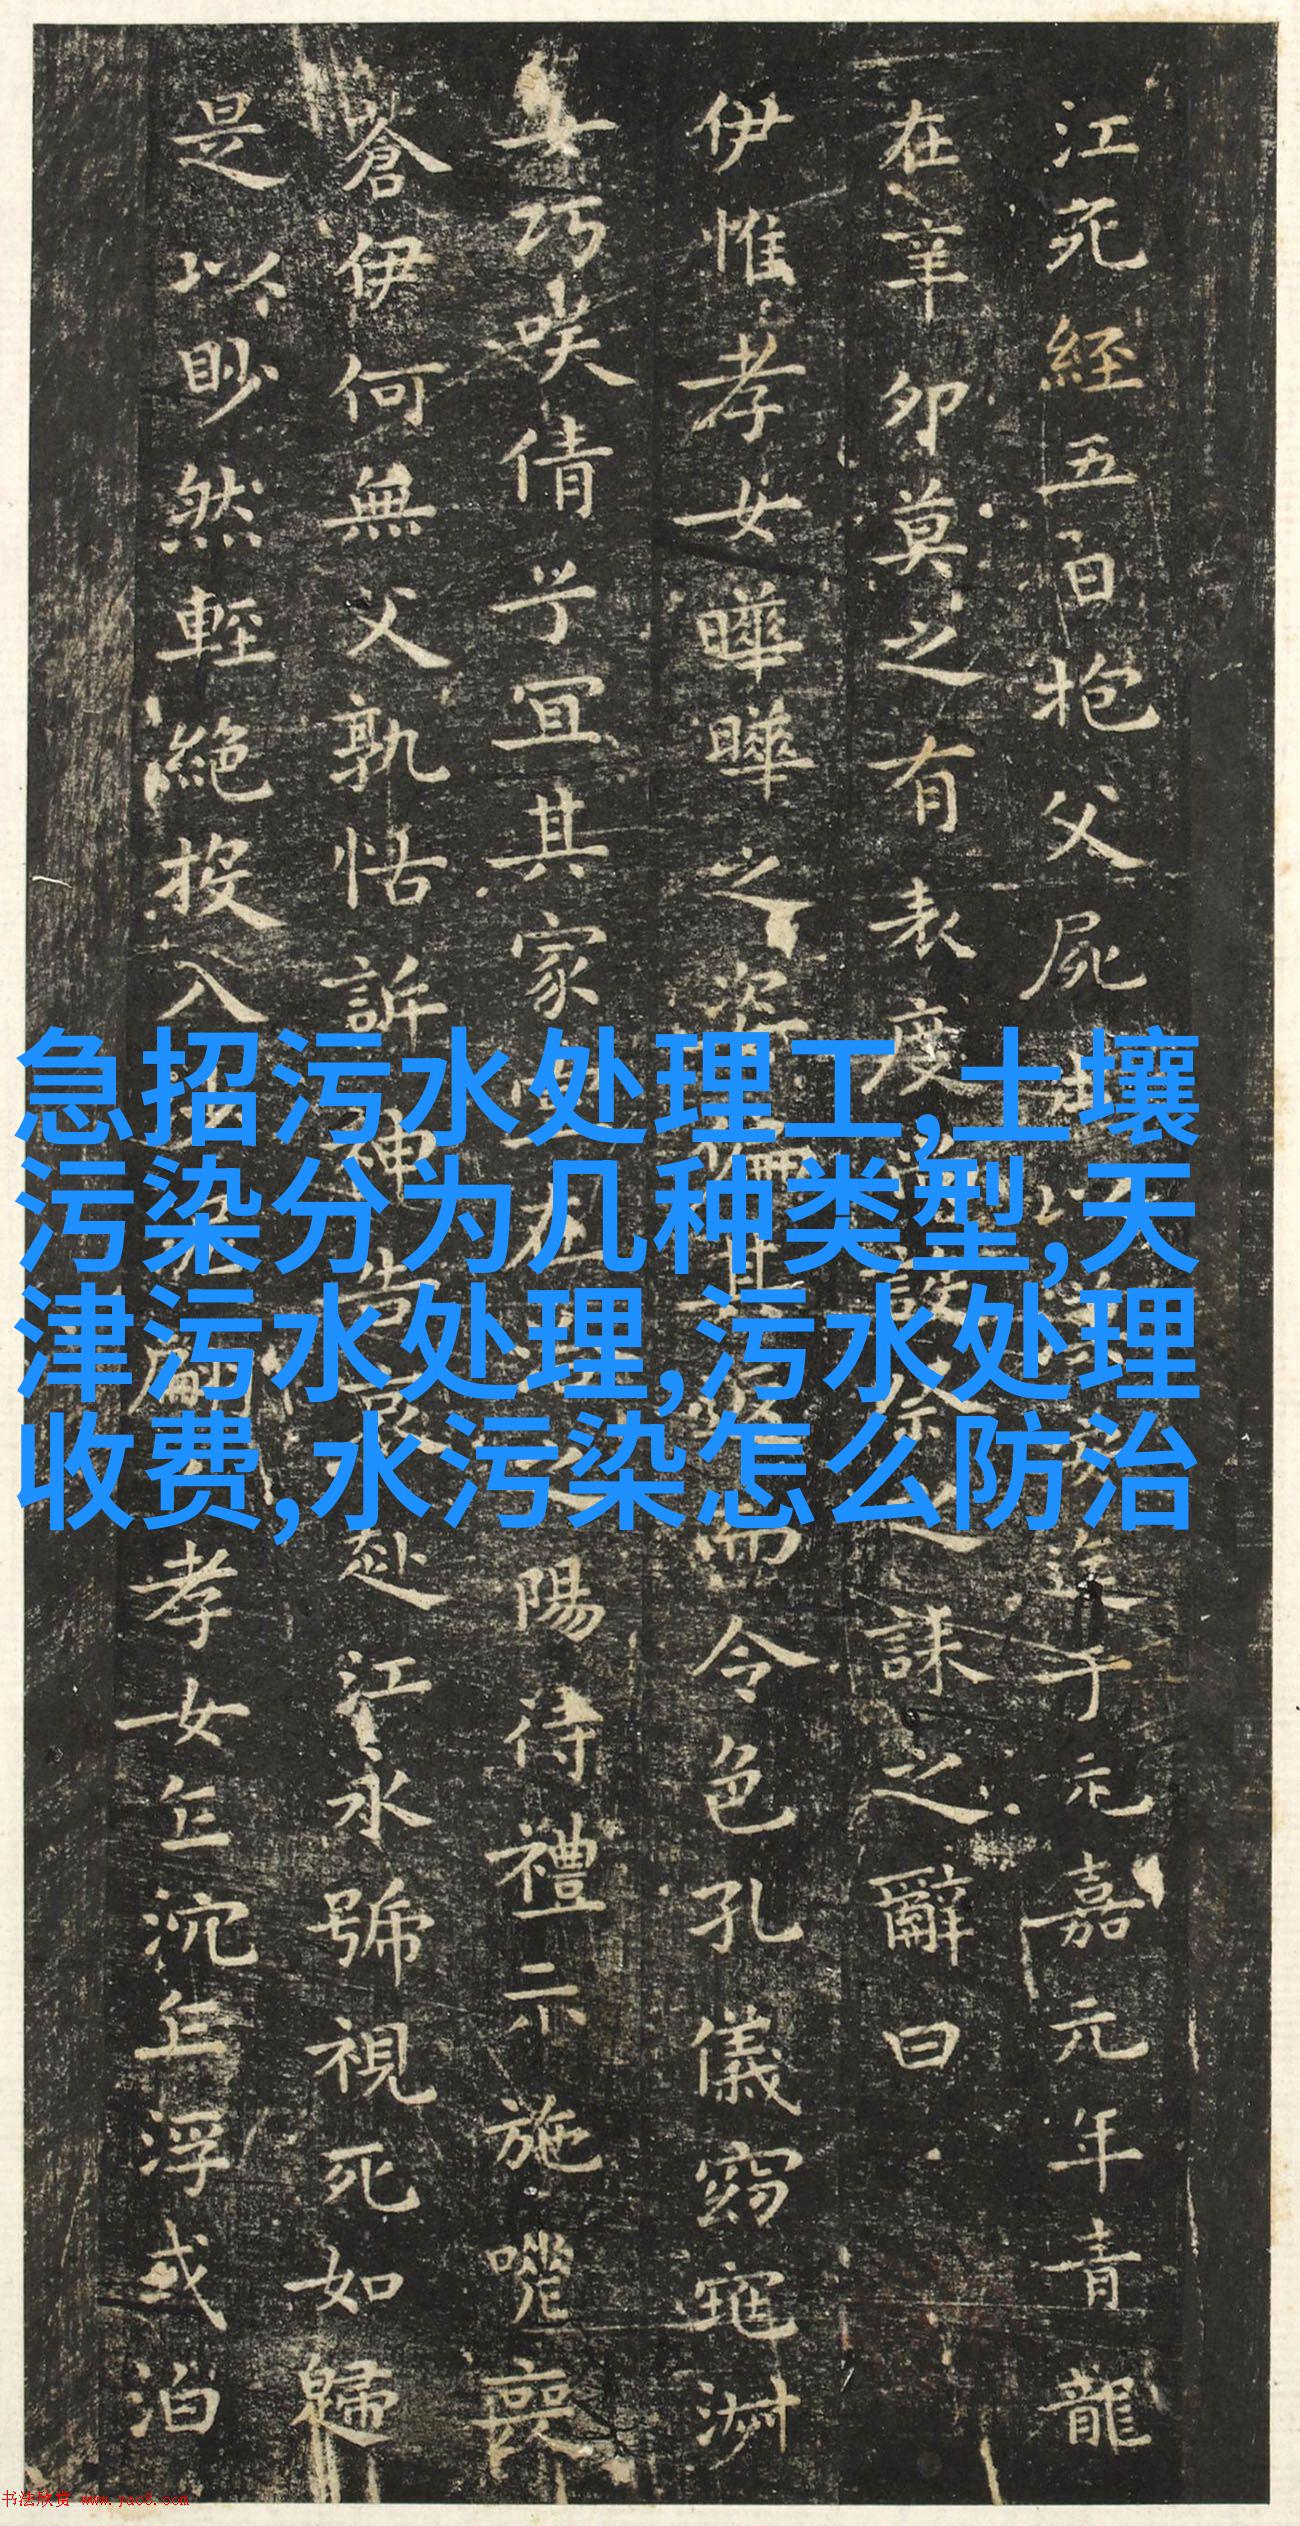 江死經五日抱父屍于元嘉元年青龍
在辛卯莫之有表度設祭之誄之辭曰
伊惟孝女曄曄之姿偏其而令色孔儀窈窕淑
女巧咲倩兮宜其家在之陽待禮未施嗟喪
蒼伊何無父孰怙訴神告哀赴江永號視死如歸
是以眇然輕絕投入孝女乍沉乍浮或泊
急招污水处理工,土壤
污染分为几种类型,天
津污水处理,污水处理
收费,水污染怎么防治
书法欣赏 www.yac8.com